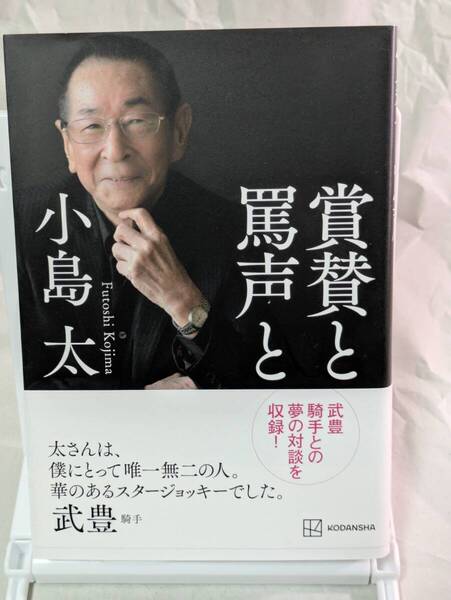 賞賛と
罵声と
小島 太
Futoshi Kojima
武豊
騎手との
夢の対談を
収録!
太さんは、
僕にとって唯一無二の人。
華のあるスタージョッキーでした。
武豊 騎手
KODANSHA